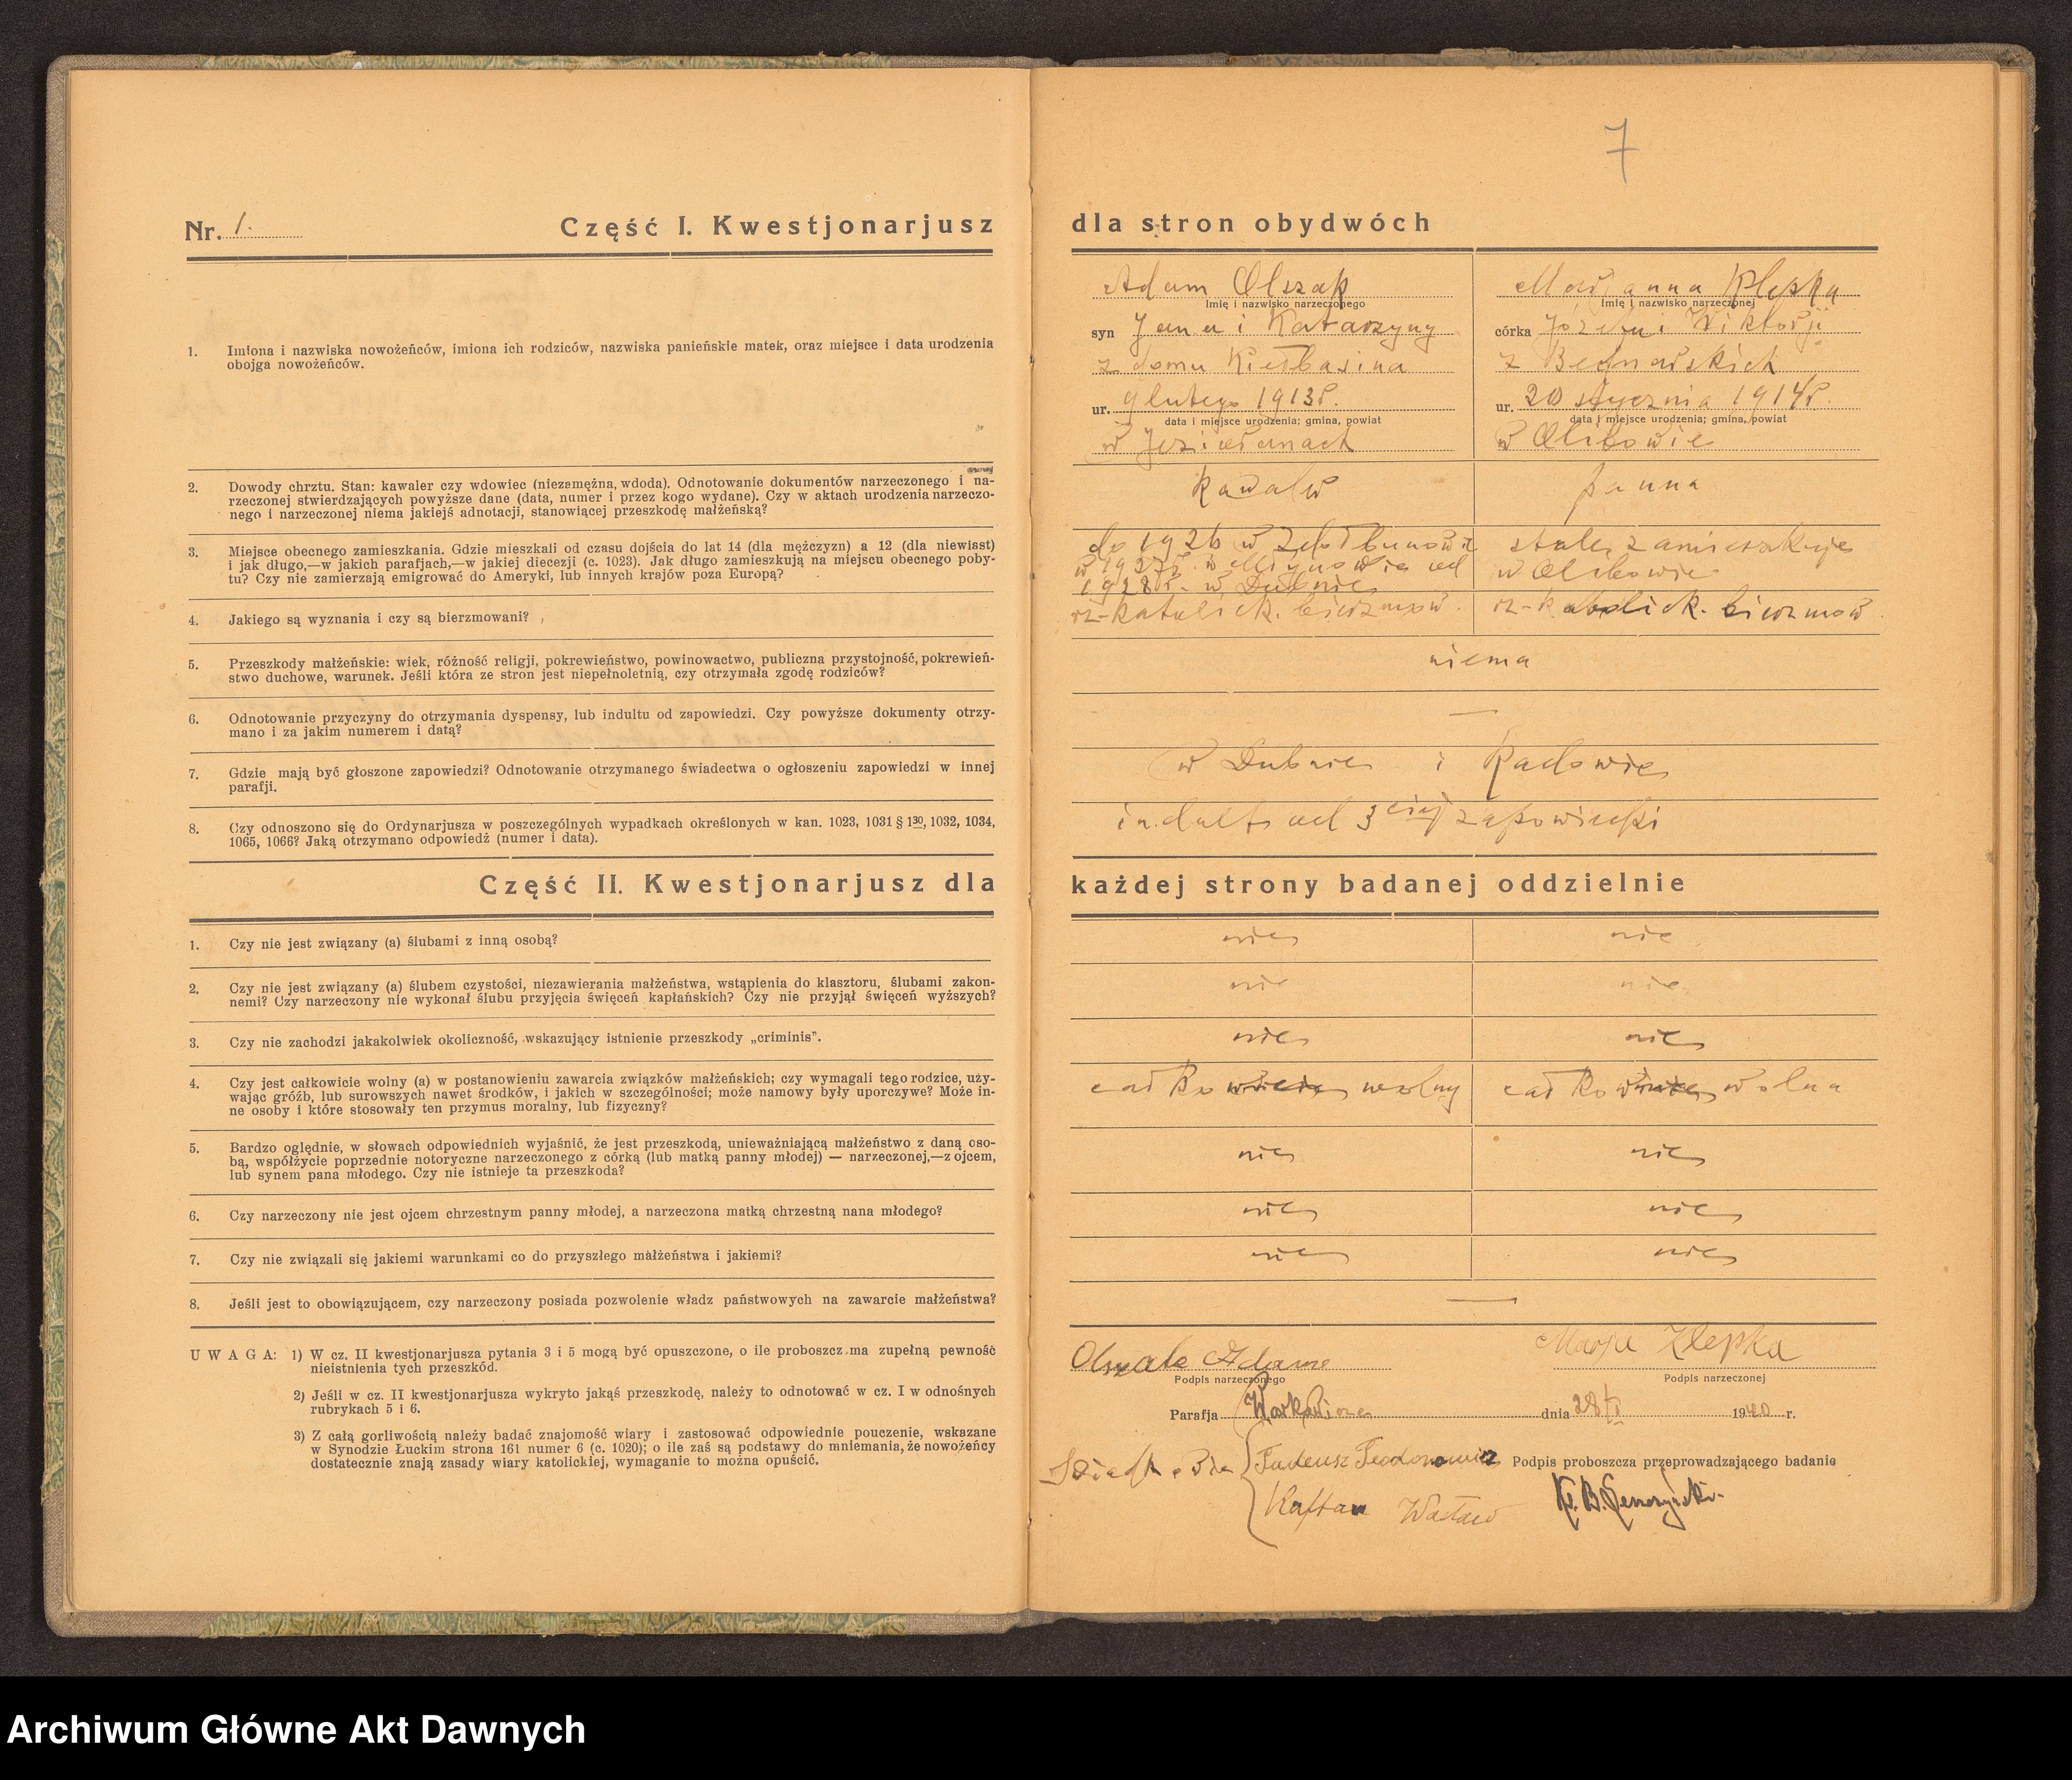 7
Nr. 1.
Część I. Kwestjonarjusz dla stron obydwóch
1. Imiona i nazwiska nowożeńców, imiona ich rodziców, nazwiska panieńskie matek, oraz miejsce i data urodzenia
obojga nowożeńców.
Adam Olszak
Imię i nazwisko narzeczonego
syn Jana i Katarzyny
z domu Kiełbasina
ur. 9 lutego 1913r.
data i miejsce urodzenia; gmina, powiat
w Jezioranach
Marianna Klepka
Imię i nazwisko narzeczonej
córka Józefa i Wiktorji
z Bednarskich
ur. 20 stycznia 1914r.
data i miejsce urodzenia; gmina, powiat
w Olibowie
2. Dowody chrztu. Stan: kawaler czy wdowiec (niezemężna, wdoda). Odnotowanie dokumentów narzeczonego i na-
rzeczonej stwierdzających powyższe dane (data, numer i przez kogo wydane). Czy w aktach urodzenia narzeczo-
nego i narzeczonej niema jakiejś adnotacji, stanowiącej przeszkodę małżeńską?
kawaler
panna
3. Miejsce obecnego zamieszkania. Gdzie mieszkali od czasu dojścia do lat 14 (dla mężczyzn) a 12 (dla niewiast)
i jak długo,—w jakich parafjach,—w jakiej diecezji (c. 1023). Jak długo zamieszkują na miejscu obecnego poby-
tu? Czy nie zamierzają emigrować do Ameryki, lub innych krajów poza Europą?
do 1926 w Zdołbunowie
w 1927r. w Młynowie od
1928r. w Dubnie
stale zamieszkuje
w Olibowie
4. Jakiego są wyznania i czy są bierzmowani?
rz-katolick. bierzmow.
rz-katolick. bierzmow.
5. Przeszkody małżeńskie: wiek, różność religji, pokrewieństwo, powinowactwo, publiczna przystojność, pokrewień-
stwo duchowe, warunek. Jeśli która ze stron jest niepełnoletnią, czy otrzymała zgodę rodziców?
niema
6. Odnotowanie przyczyny do otrzymania dyspensy, lub indultu od zapowiedzi. Czy powyższe dokumenty otrzy-
mano i za jakim numerem i datą?
—
7. Gdzie mają być głoszone zapowiedzi? Odnotowanie otrzymanego świadectwa o ogłoszeniu zapowiedzi w innej
parafji.
w Dubnie i Radowie
8. Czy odnoszono się do Ordynarjusza w poszczególnych wypadkach określonych w kan. 1023, 1031 § 1 30, 1032, 1034,
1065, 1066? Jaką otrzymano odpowiedź (numer i data).
indult od 3 ciej zapowiedzi
Część II. Kwestjonarjusz dla każdej strony badanej oddzielnie
1. Czy nie jest związany (a) ślubami z inną osobą?
nie
nie
2. Czy nie jest związany (a) ślubem czystości, niezawierania małżeństwa, wstąpienia do klasztoru, ślubami zakon-
nemi? Czy narzeczony nie wykonał ślubu przyjęcia święceń kapłańskich? Czy nie przyjął święceń wyższych?
nie
nie
3. Czy nie zachodzi jakakolwiek okoliczność, wskazujący istnienie przeszkody „criminis".
nie
nie
4. Czy jest całkowicie wolny (a) w postanowieniu zawarcia związków małżeńskich; czy wymagali tego rodzice, uży-
wając gróźb, lub surowszych nawet środków, i jakich w szczególności; może namowy były uporczywe? Może in-
ne osoby i które stosowały ten przymus moralny, lub fizyczny?
całkowicie wolny
całkowicie wolna
5. Bardzo oględnie, w słowach odpowiednich wyjaśnić, że jest przeszkodą, unieważniającą małżeństwo z daną oso-
bą, współżycie poprzednie notoryczne narzeczonego z córką (lub matką panny młodej) — narzeczonej,—z ojcem,
lub synem pana młodego. Czy nie istnieje ta przeszkoda?
nie
nie
6. Czy narzeczony nie jest ojcem chrzestnym panny młodej, a narzeczona matką chrzestną nana młodego?
nie
nie
7. Czy nie związali się jakiemi warunkami co do przyszłego małżeństwa i jakiemi?
nie
nie
8. Jeśli jest to obowiązującem, czy narzeczony posiada pozwolenie władz państwowych na zawarcie małżeństwa?
—
UWAGA: 1) W cz. II kwestjonarjusza pytania 3 i 5 mogą być opuszczone, o ile proboszcz ma zupełną pewność
nieistnienia tych przeszkód.
2) Jeśli w cz. II kwestjonarjusza wykryto jakąś przeszkodę, należy to odnotować w cz. I w odnośnych
rubrykach 5 i 6.
3) Z całą gorliwością należy badać znajomość wiary i zastosować odpowiednie pouczenie, wskazane
w Synodzie Łuckim strona 161 numer 6 (c. 1020); o ile zaś są podstawy do mniemania, że nowożeńcy
dostatecznie znają zasady wiary katolickiej, wymaganie to można opuścić.
Olszak Adam
Podpis narzeczonego
Marja Klepka
Podpis narzeczonej
Parafja dnia 28 1940 r.
Świadkowie Tadeusz Teodorowicz
Kaftan Wacław
Podpis proboszcza przeprowadzającego badanie
Ks. B.
Archiwum Główne Akt Dawnych